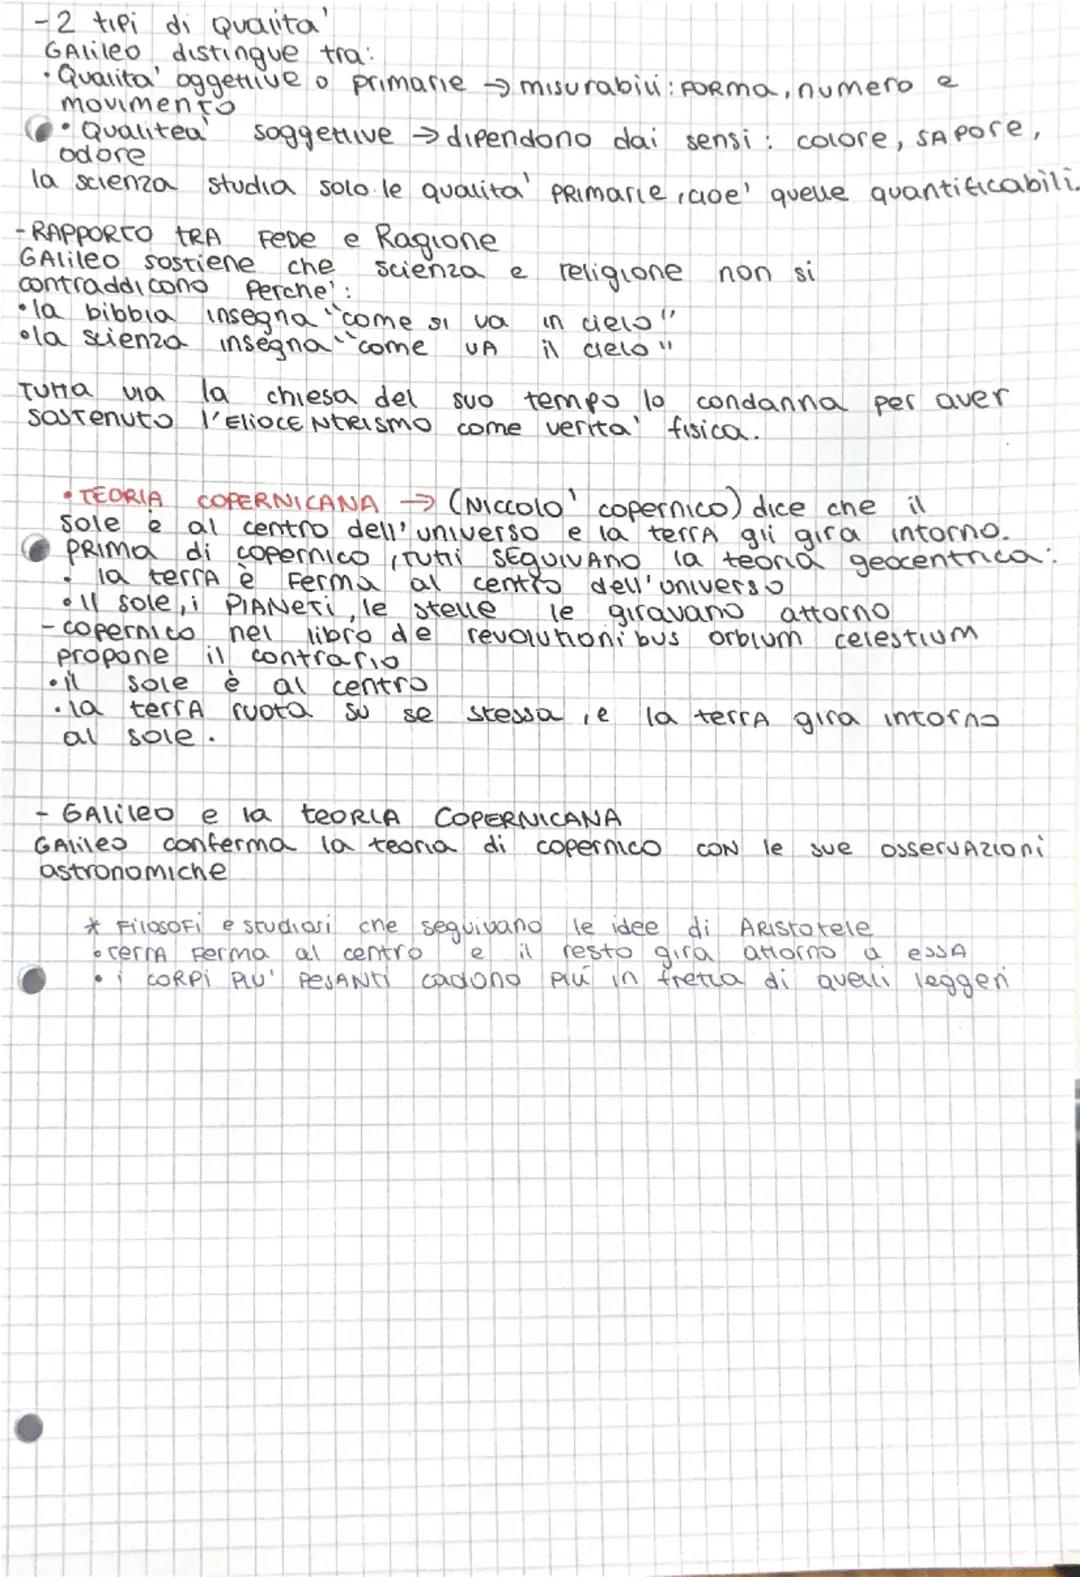 - 2 tipi di Qualita'
GAlileo distingue tra:
• Qualita' oggettive o primarie → misurabili: FORMA, numero e
movimento
• Qualitea' soggettive → dipendono dai sensi: colore, SAPore,
odore
la scienza studia solo le qualita' PRIMARIE, cioe' quelle quantificabili.
- RAPPORTO tRA FeDe e Ragione
GALileo sostiene che scienza e religione non si
contraddicono Perche':
• la bibbia insegna "come si va in cielo"
• la scienza insegna "come vA il cielo"
Tutta via la chiesa del suo tempo lo condanna per aver
sostenuto l'ElioCENtRISMO come verita' fisica.
• TEORIA COPERNICANA → (Niccolo' copernico) dice che il
sole è al centro dell'universo e la terrA gli gira intorno.
PRIMA di copernico, tutti SEGUIVANO la teoria geocentrica:
• la terrA è Ferma al centro dell'universo
• Il sole, i PIANeti, le stelle le giravano attorno
- copernico nel libro de revolutionibus orbium celestium
propone il contrario
• il sole è al centro
• la terrA ruota su se stessa, e la terrA gira intorno
al sole.
- GAlileo e la teORIA COPERNICANA
GAlileo conferma la teoria di copernico CON le sue osservAzioni
astronomiche
* FilosoFi e studiosi che seguivano le idee di ARistotele
• terrA Ferma al centro e il resto gira attorno a essA
• i CORPi PIU' PeSANTi cadono più in fretta di quelli leggeri